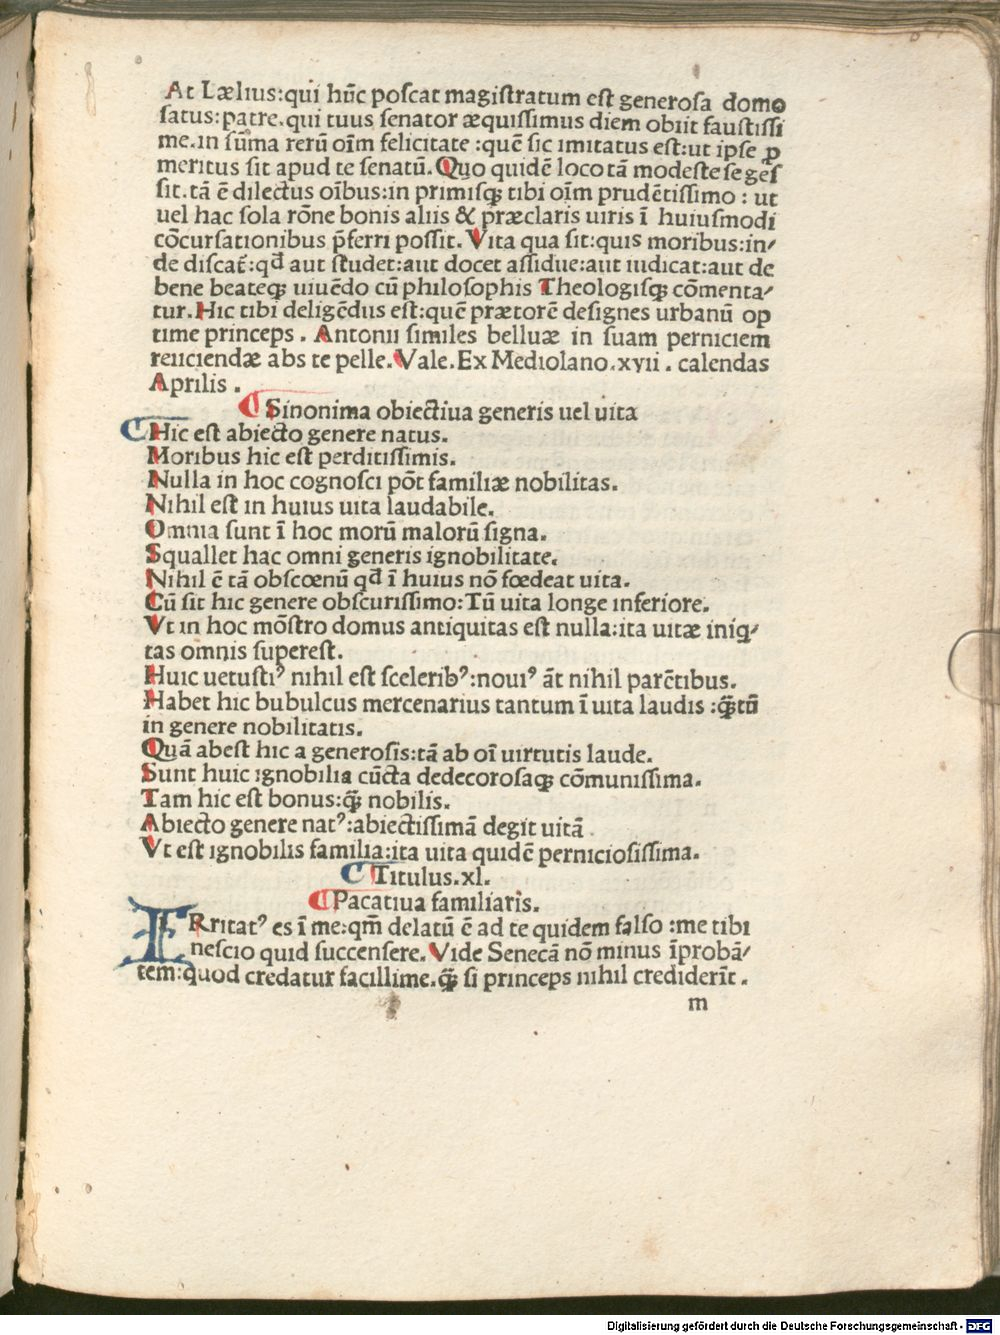 At Lælius:qui hūc poſcat magiſtratum eſt generoſa domo
ſatus:patre.qui tuus ſenator æquiſſimus diem obiit fauſtiſſi
me.in ſūma rerū oīm felicitate :quē ſic imitatus eſt:ut ipſe ꝑ
meritus ſit apud te ſenatū.Quo quidē loco tā modeſte ſe geſ
ſit.tā ē dilectus oībus:in primiſqꝫ tibi oīm prudētiſſimo : ut
uel hac ſola rōne bonis aliis & præclaris uiris ī huiuſmodi
cōcurſationibus p̄ferri poſſit.Vita qua ſit:quis moribus:in⸗
de diſcat̄:qd̄ aut ſtudet:aut docet aſſidue:aut iudicat:aut de
bene beateqꝫ uiuēdo cū philoſophis Theologiſqꝫ cōmenta⸗
tur.Hic tibi deligēdus eſt:quē prætorē deſignes urbanū op
time princeps . Antonii ſimiles belluæ in ſuam perniciem
reiiciendæ abs te pelle.Vale.Ex Mediolano.xyii . calendas
Aprilis .
Sinonima obiectiua generis uel uita
Hic eſt abiecto genere natus.
Moribus hic eſt perditiſſimis.
Nulla in hoc cognoſci pōt familiæ nobilitas.
Nihil eſt in huius uita laudabile.
Omnia ſunt ī hoc morū malorū ſigna.
Squallet hac omni generis ignobilitate.
Nihil ē tā obſcœnū qd̄ ī huius nō fœdeat uita.
Cū ſit hic genere obſcuriſſimo:Tū uita longe inferiore.
Vt in hoc mōſtro domus antiquitas eſt nulla:ita uitæ iniq⸗
tas omnis ſupereſt.
Huic uetuſtiꝰ nihil eſt ſceleribꝰ:nouiꝰ āt nihil parētibus.
Habet hic bubulcus mercenarius tantum ī uita laudis :q̄ꝫtū
in genere nobilitatis.
Quā abeſt hic a generoſis:tā ab oī uirtutis laude.
Sunt huic ignobilia cūcta dedecoroſaqꝫ cōmuniſſima.
Tam hic eſt bonus:q̄ꝫ nobilis.
Abiecto genere natꝰ:abiectiſſimā degit uitā .
Vt eſt ignobilis familia:ita uita quidē pernicioſiſſima.
Titulus.xl.
Pacatiua familiaris.
IRritatꝰ es ī me:qm̄ delatū ē ad te quidem falſo :me tibi
neſcio quid ſuccenſere.Vide Senecā nō minus īprobā⸗
tem:quod credatur facillime.q̄ꝫ ſi princeps nihil crediderīt .
m
Digitalisierung gefördert durch die Deutsche Forschungsgemeinschaft - DFG